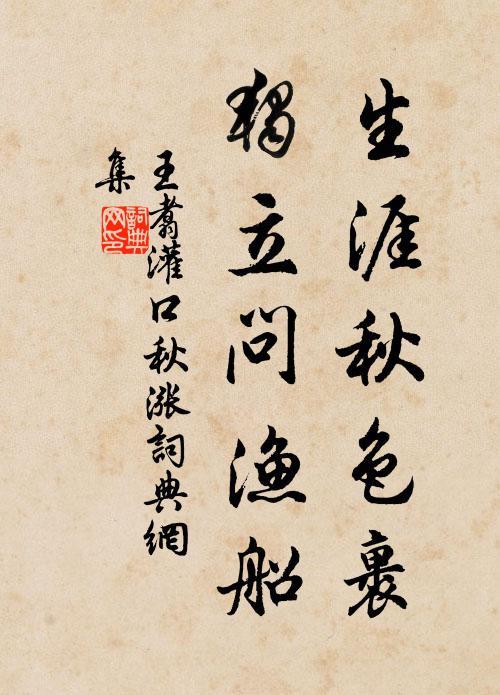 生涯秋色裏
獨立問漁船
王翥灌口秋漲詞典網
集
詞典
网印